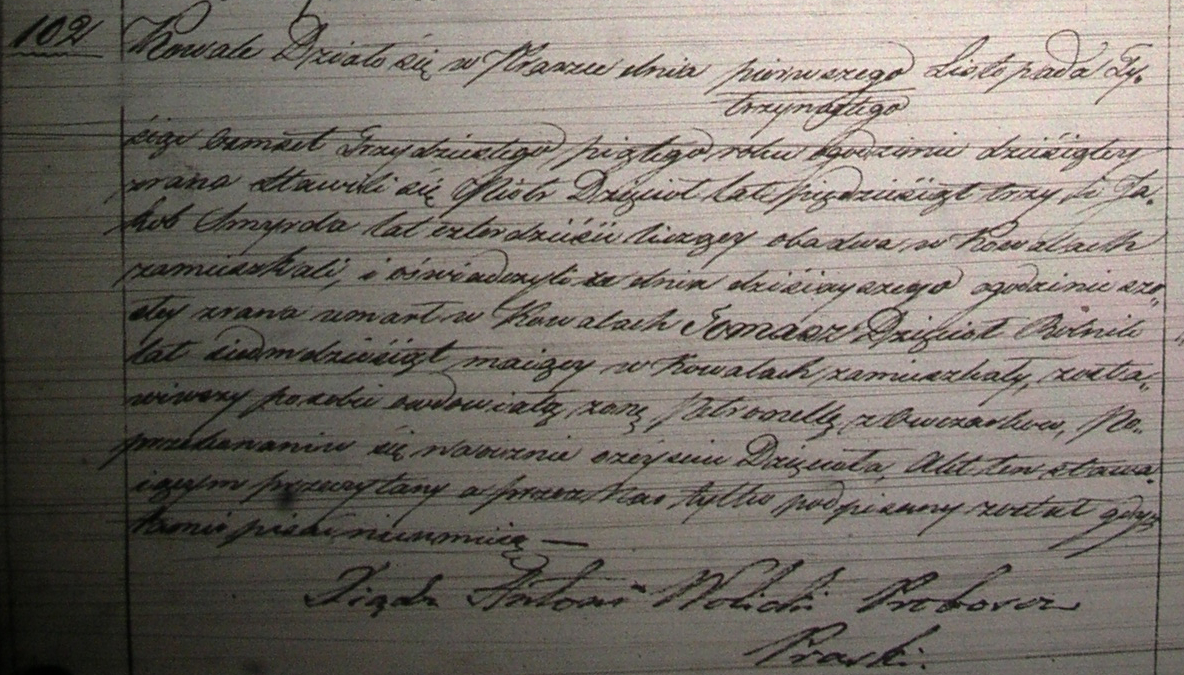 102
Kowale Działo się w Praszce dnia pierwszego Listopada Ty-
trzynastego
siąc osmset Trzydziestego piątego roku ogodzinie dziesiątey
zrana stawili się Piotr Dzięcioł lat pięćdziesiąt trzy i Ja-
kob Smyrda lat czterdzieści liczący obadwa w Kowalach
zamieszkali, i oświadczyli że dnia dzisieyszego ogodzinie szo-
stey zrana umarł w Kowalach Tomasz Dzięcioł Rolnik
lat siedmdziesiąt maiący w Kowalach zamieszkały, zosta-
wiwszy posobie owdowiałą żonę Petronellę z Owczarków, Po-
przekonaniu się naocznie ozeyściu Dzięcioła, Akt ten stawa-
iącym przeczytany a przez Nas tylko podpisany został gdyż
pisać nieumieią —
Xiądz Antoni Wolicki Proboszcz
Praszki.